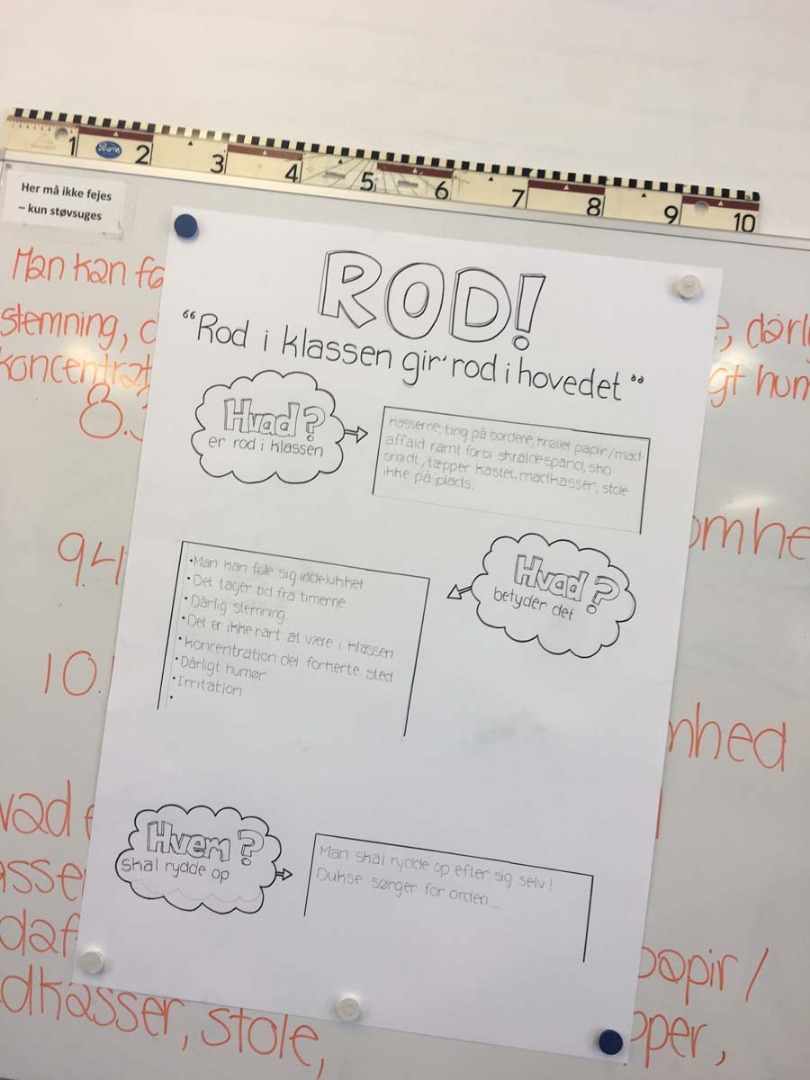 1 2 3 4 5 6 7 8 9 10
Her må ikke fejes
– kun støvsuges
ROD!
"Rod i klassen gir' rod i hovedet"
Hvad?
er rod i klassen
Kasserne, ting på bordene, krøllet papir/mad-
affald ramt forbi skraldespand, sko
smidt, tæpper kastet, madkasser, stole
ikke på plads.
Hvad?
betyder det
•Man kan føle sig indelukket.
•Det tager tid fra timerne
•Dårlig stemning.
•Det er ikke rart at være i klassen
•Koncentration det forkerte sted
•Dårligt humør
•Irritation
•
Hvem?
skal rydde op
Man skal rydde op efter sig selv!
Dukse sørger for orden...
Man kan
stemning,
8.
9.4
10.
dkasser, stole,
papir /
pper,